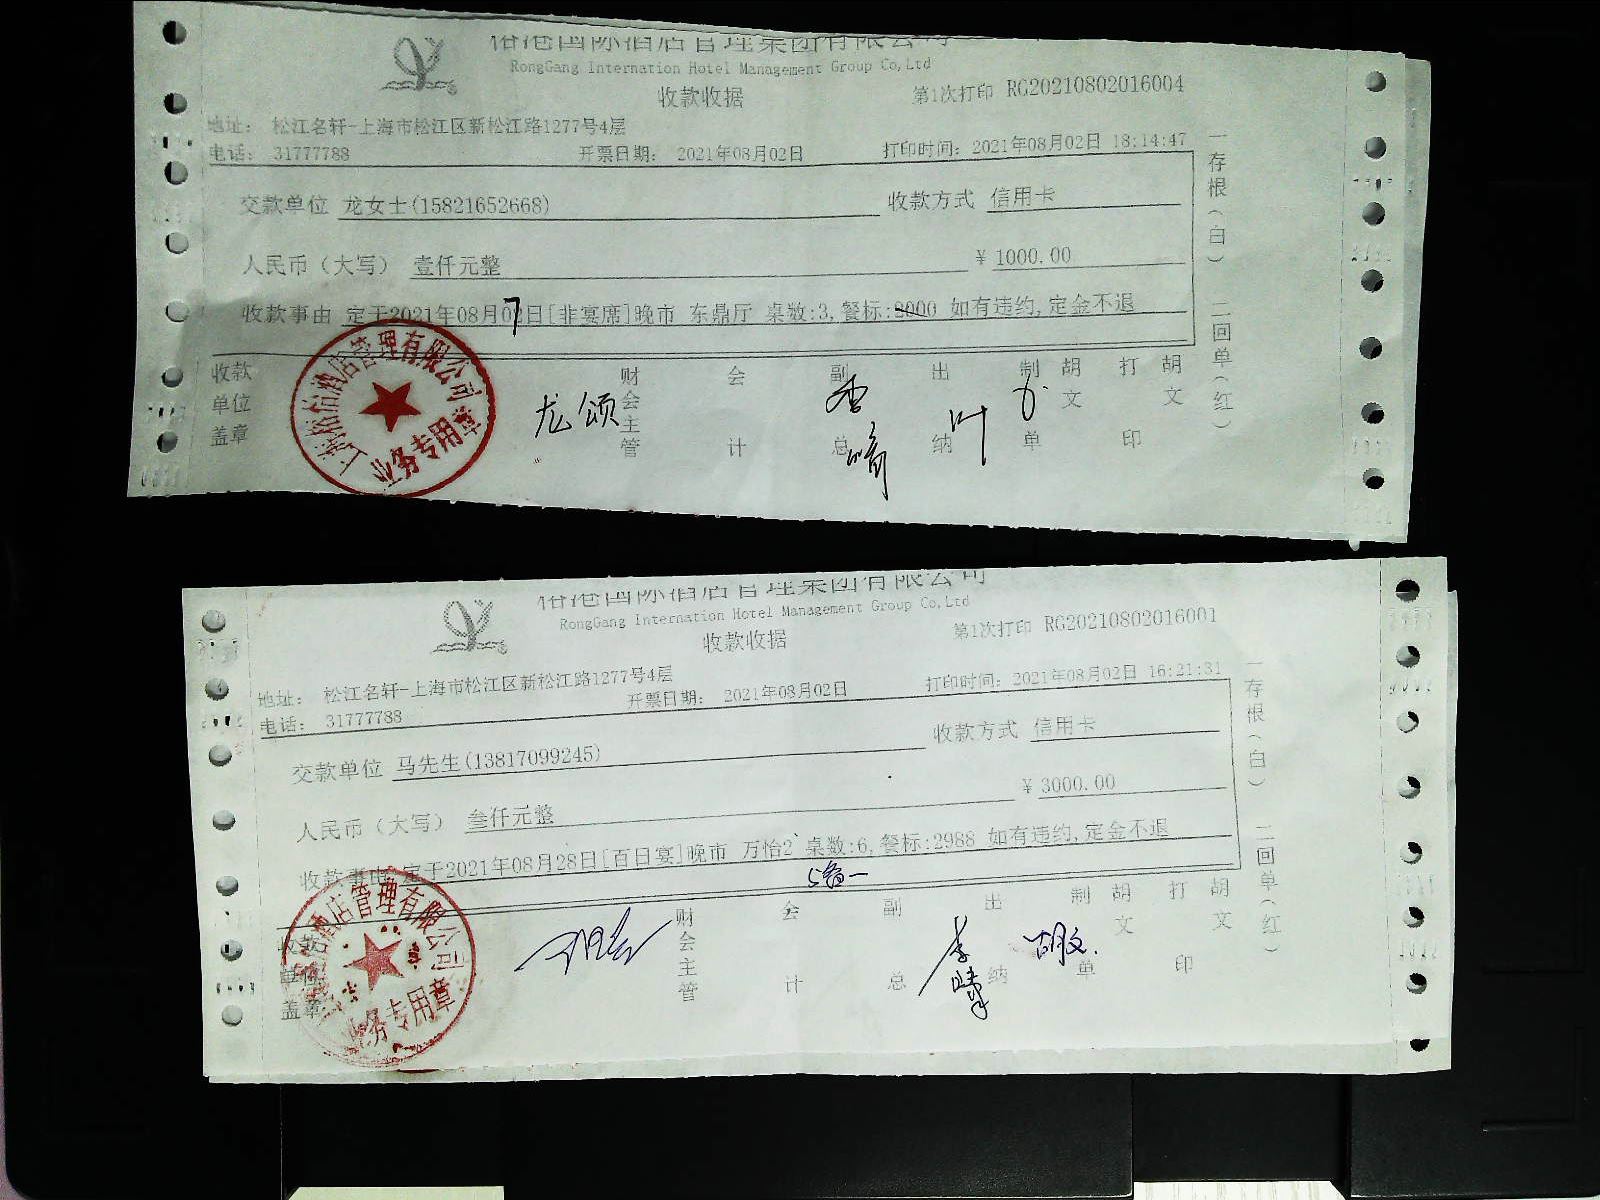 裕港国际酒店管理集团有限公司
RongGang Internation Hotel Management Group Co,Ltd
收款收据 第1次打印 RG20210802016004
地址: 松江名轩-上海市松江区新松江路1277号4层
电话: 31777788 开票日期: 2021年08月02日 打印时间: 2021年08月02日 18:14:47
交款单位 龙女士(15821652668) 收款方式 信用卡
人民币（大写） 壹仟元整 ¥ 1000.00
收款事由 定于2021年08月7日[非宴席]晚市 东鼎厅 桌数:3,餐标:8000 如有违约,定金不退
一存根(白) 二回单(红)
收款单位盖章 财会主管 会计 副总 出纳 制单 胡文 打印 胡文
龙颂
上海裕怡酒店管理有限公司
业务专用章
裕港国际酒店管理集团有限公司
RongGang Internation Hotel Management Group Co,Ltd
收款收据 第1次打印 RG20210802016001
地址: 松江名轩-上海市松江区新松江路1277号4层
电话: 31777788 开票日期: 2021年08月02日 打印时间: 2021年08月02日 16:21:31
交款单位 马先生(13817099245) 收款方式 信用卡
人民币（大写） 叁仟元整 ¥ 3000.00
收款事由 定于2021年08月28日[百日宴]晚市 万怡2 桌数:6,餐标:2988 如有违约,定金不退
5备一
一存根(白) 二回单(红)
收款单位盖章 财会主管 会计 副总 出纳 制单 胡文 打印 胡文
胡文.
酒店管理有限公司
业务专用章